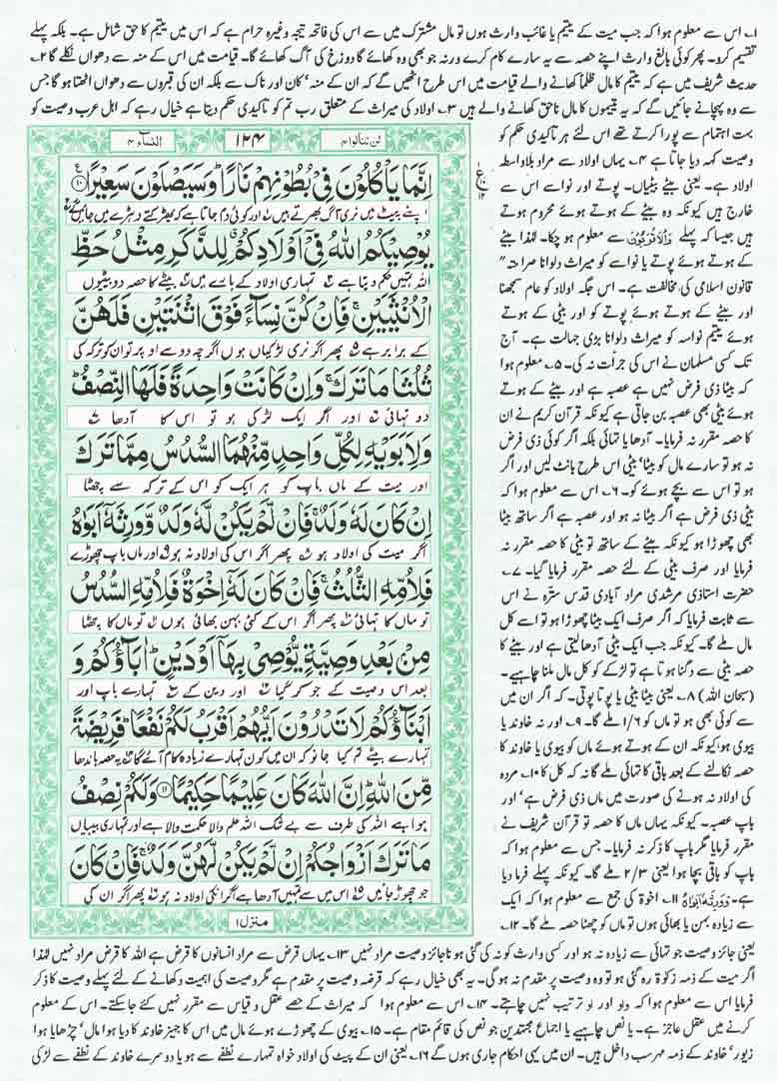 ۱۔ اس سے معلوم ہوا کہ جب میت کے یتیم یا غائب وارث ہوں تو مال مشترک میں سے اس کی فاتحہ تیجہ وغیرہ حرام ہے کہ اس میں یتیم کا حق شامل ہے۔ بلکہ پہلے
تقسیم کرو۔ پھر کوئی بالغ وارث اپنے حصہ سے یہ سارے کام کرے ورنہ جو بھی وہ کھائے گا دوزخ کی آگ کھائے گا۔ قیامت میں اس کے منہ سے دھواں نکلے گا ۲۔
حدیث شریف میں ہے کہ یتیم کا مال ظلماً کھانے والے قیامت میں اس طرح اٹھیں گے کہ ان کے منہ' کان اور ناک سے بلکہ ان کی قبروں سے دھواں اٹھتا ہو گا جس
سے وہ پہچانے جائیں گے کہ یہ یتیموں کا مال ناحق کھانے والے ہیں ۳۔ اولاد کی میراث کے متعلق رب تم کو تاکیدی حکم دیتا ہے خیال رہے کہ اہل عرب وصیت کو
بہت اہتمام سے پورا کرتے تھے اس لئے ہر تاکیدی حکم کو
وصیت کہہ دیا جاتا ہے ۴۔ یہاں اولاد سے مراد بلاواسطہ
اولاد ہے۔ یعنی بیٹے بیٹیاں۔ پوتے اور نواسے اس سے
خارج ہیں کیونکہ وہ بیٹے کے ہوتے ہوئے محروم ہوتے
ہیں جیسا کہ پہلے وَالْاَقْرَبُوْنَ سے معلوم ہو چکا۔ لہٰذا بیٹے
کے ہوتے ہوئے پوتے یا نواسے کو میراث دلوانا صراحتہً
قانون اسلامی کی مخالفت ہے۔ اس جگہ اولاد کو عام سمجھنا
اور بیٹے کے ہوتے ہوئے پوتے کو اور بیٹی کے ہوتے
ہوئے یتیم نواسہ کو میراث دلوانا بڑی جہالت ہے۔ آج
تک کسی مسلمان نے اس کی جرأت نہ کی۔ ۵۔ معلوم ہوا
کہ بیٹا ذی فرض نہیں ہے عصبہ ہے اور بیٹے کے ہوتے
ہوئے بیٹی بھی عصبہ بن جاتی ہے کیونکہ قرآن کریم نے ان
کا حصہ مقرر نہ فرمایا۔ آدھا یا تہائی بلکہ اگر کوئی ذی فرض
نہ ہو تو سارے مال کو بیٹا' بیٹی اس طرح بانٹ لیں اور اگر
ہو تو اس سے بچے ہوئے کو۔ ۶۔ اس سے معلوم ہوا کہ
بیٹی ذی فرض ہے اگر بیٹا نہ ہو اور عصبہ ہے اگر ساتھ بیٹا
بھی چھوڑا ہو کیونکہ بیٹے کے ساتھ تو بیٹی کا حصہ مقرر نہ
فرمایا اور صرف بیٹی کے لئے حصہ مقرر فرمایا گیا۔ ۷۔
حضرت استاذی مرشدی مراد آبادی قدس سرہ نے اس
سے ثابت فرمایا کہ اگر صرف ایک بیٹا چھوڑا ہو تو اسے کل
مال ملے گا۔ کیونکہ جب ایک بیٹی آدھا لیتی ہے اور بیٹے کا
حصہ بیٹی سے دگنا ہوتا ہے تو لڑکے کو کل مال ملنا چاہیے۔
(سبحان اللہ) ۸۔ یعنی بیٹا بیٹی یا پوتا پوتی۔ کہ اگر ان میں
سے کوئی بھی ہو تو ماں کو ۱/۶ ملے گا۔ ۹۔ اور نہ خاوند یا
بیوی ہو کیونکہ ان کے ہوتے ہوئے ماں کو بیوی یا خاوند کا
حصہ نکالنے کے بعد باقی کا تہائی ملے گا نہ کہ کل کا ۱۰۔ مردہ
کی اولاد نہ ہونے کی صورت میں ماں ذی فرض ہے' اور
باپ عصبہ۔ کیونکہ یہاں ماں کا حصہ تو قرآن شریف نے
مقرر فرمایا مگر باپ کا ذکر نہ فرمایا۔ جس سے معلوم ہوا کہ
باپ کو باقی بچا ہوا یعنی ۲/۳ ملے گا۔ کیونکہ پہلے فرما دیا
ہے۔ وَوَرِثَهٗۤ اَبَوٰهُ ۱۱۔ اخوۃ کی جمع سے معلوم ہوا کہ ایک
سے زیادہ بہن یا بھائی ہوں تو ماں کو چھٹا حصہ ملے گا۔ ۱۲۔
لن تنالوا ۴
۱۲۴
النساء ۴
اِنَّمَا یَاْكُلُوْنَ فِیْ بُطُوْنِهِمْ نَارًا ؕ وَ سَیَصْلَوْنَ سَعِیْرًا ﴿۱۰﴾
اپنے پیٹ میں نری آگ بھرتے ہیں اور کوئی دم جاتا ہے کہ بھڑکتے دھڑے میں جائیں گے
یُوْصِیْكُمُ اللّٰهُ فِیْۤ اَوْلَادِكُمْ ۗ لِلذَّكَرِ مِثْلُ حَظِّ
اللہ تمہیں حکم دیتا ہے تمہاری اولاد کے بارے میں بیٹے کا حصہ دو بیٹیوں
الْاُنْثَیَیْنِ ۚ فَاِنْ كُنَّ نِسَآءً فَوْقَ اثْنَتَیْنِ فَلَهُنَّ
کے برابر ہے پھر اگر نری لڑکیاں ہوں اگرچہ دو سے اوپر تو ان کو ترکہ کی
ثُلُثَا مَا تَرَكَ ۚ وَ اِنْ كَانَتْ وَاحِدَةً فَلَهَا النِّصْفُ ؕ
دو تہائی اور اگر ایک لڑکی ہو تو اس کا آدھا
وَ لِاَبَوَیْهِ لِكُلِّ وَاحِدٍ مِّنْهُمَا السُّدُسُ مِمَّا تَرَكَ
اور میت کے ماں باپ کو ہر ایک کو اس کے ترکہ سے چھٹا
اِنْ كَانَ لَهٗ وَلَدٌ ۚ فَاِنْ لَّمْ یَكُنْ لَّهٗ وَلَدٌ وَّ وَرِثَهٗۤ اَبَوٰهُ
اگر میت کی اولاد ہو پھر اگر اس کی اولاد نہ ہو اور ماں باپ چھوڑے
فَلِاُمِّهِ الثُّلُثُ ۚ فَاِنْ كَانَ لَهٗۤ اِخْوَةٌ فَلِاُمِّهِ السُّدُسُ
تو ماں کا تہائی پھر اگر اس کے کئی بہن بھائی ہوں تو ماں کا چھٹا
مِنْۢ بَعْدِ وَصِیَّةٍ یُّوْصِیْ بِهَاۤ اَوْ دَیْنٍ ؕ اٰبَآؤُكُمْ وَ
بعد اس وصیت کے جو کر گیا اور دین کے تمہارے باپ اور
اَبْنَآؤُكُمْ لَا تَدْرُوْنَ اَیُّهُمْ اَقْرَبُ لَكُمْ نَفْعًا ؕ فَرِیْضَةً
تمہارے بیٹے تم کیا جانو کہ ان میں کون تمہارے زیادہ کام آئے گا یہ حصہ باندھا
مِّنَ اللّٰهِ ؕ اِنَّ اللّٰهَ كَانَ عَلِیْمًا حَكِیْمًا ﴿۱۱﴾ وَ لَكُمْ نِصْفُ
ہوا ہے اللہ کی طرف سے بے شک اللہ علم والا حکمت والا ہے اور تمہاری بیبیاں
مَا تَرَكَ اَزْوَاجُكُمْ اِنْ لَّمْ یَكُنْ لَّهُنَّ وَلَدٌ ۚ فَاِنْ كَانَ
جو چھوڑ جائیں اس میں سے تمہیں آدھا ہے اگر انکی اولاد نہ ہو پھر اگر ان کی
منزل ۱
یعنی جائز وصیت جو تہائی سے زیادہ نہ ہو اور کسی وارث کو نہ کی گئی ہو ناجائز وصیت مراد نہیں ۱۳۔ یہاں قرض سے مراد انسانوں کا قرض ہے اللہ کا قرض مراد نہیں لہٰذا
اگر میت کے ذمہ زکوٰۃ رہ گئی ہو تو وہ وصیت پر مقدم نہ ہو گی۔ یہ بھی خیال رہے کہ قرضہ وصیت پر مقدم ہے مگر وصیت کی اہمیت دکھانے کے لئے پہلے وصیت کا ذکر
فرمایا اس سے معلوم ہوا کہ واو اور او ترتیب نہیں چاہتے۔ ۱۴۔ اس سے معلوم ہوا کہ میراث کے حصے عقل و قیاس سے مقرر نہیں کئے جا سکتے۔ اس کے معلوم
کرنے میں عقل عاجز ہے۔ یا نص چاہیے یا اجماع مجتہدین جو نص کی قائم مقام ہے۔ ۱۵۔ بیوی کے چھوڑے ہوئے مال میں اس کا جہیز خاوند کا دیا ہوا مال' چڑھایا ہوا
زیور' خاوند کے ذمہ مہر سب داخل ہیں۔ ان میں یہی احکام جاری ہوں گے ۱۶۔ یعنی ان کے پیٹ کی اولاد خواہ تمہارے نطفے سے ہو یا دوسرے خاوند کے نطفے سے لڑکی